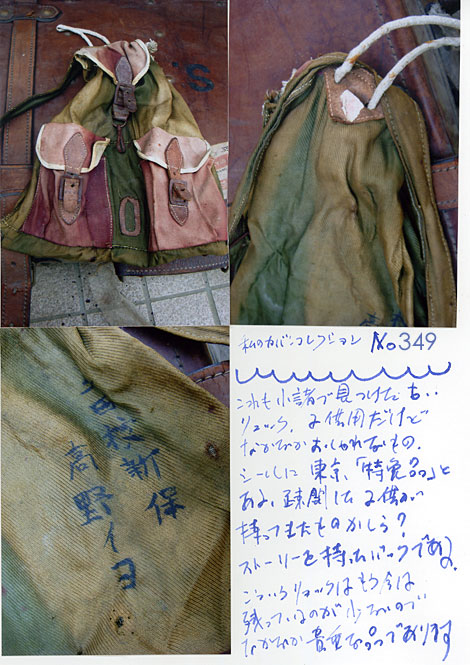 私のカバンコレクション No349
これも小諸で見つけた古い
リュック、子供用だけど
なかなかおしゃれなもの。
シールに東京「特免品」と
ある、疎開した子供が
持ってきたものかしら?
ストーリーを持ったバックである。
こういうリュックはもう今は
残っているのが少ないので
なかなか貴重な品であります
S.
新保
高野イヨ